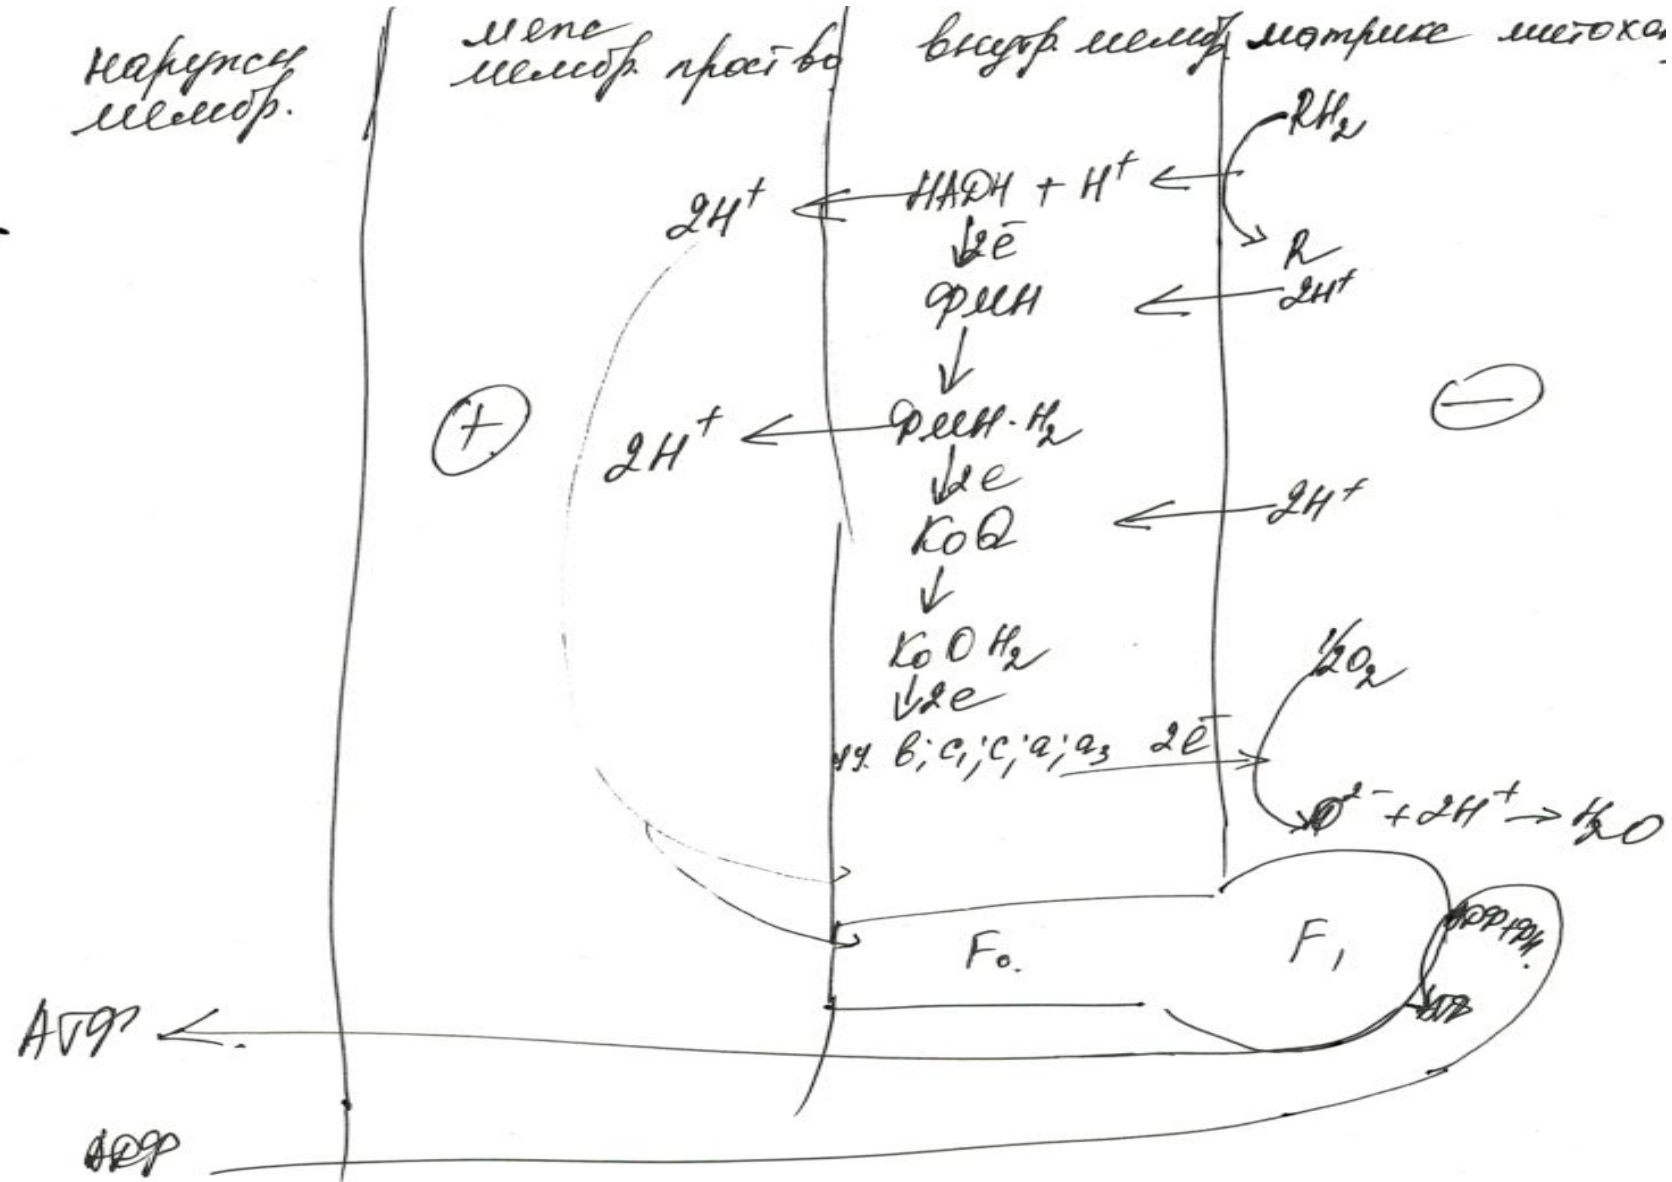 наружн
мембр.
меж
мембр. проство
внутр. мембр.
матрикс митохон
RH₂
2H⁺
НАДН + H⁺
↓2e⁻
R
ФМН
2H⁺
↓
+
−
2H⁺
ФМН·H₂
↓2e
KoQ
2H⁺
↓
KoQH₂
↓2e
1/2O₂
b; c₁; c; a; a₃ 2e⁻
O²⁻ + 2H⁺ → H₂O
F₀.
F₁
АДФ+Фн.
АТФ
АТФ
АДФ